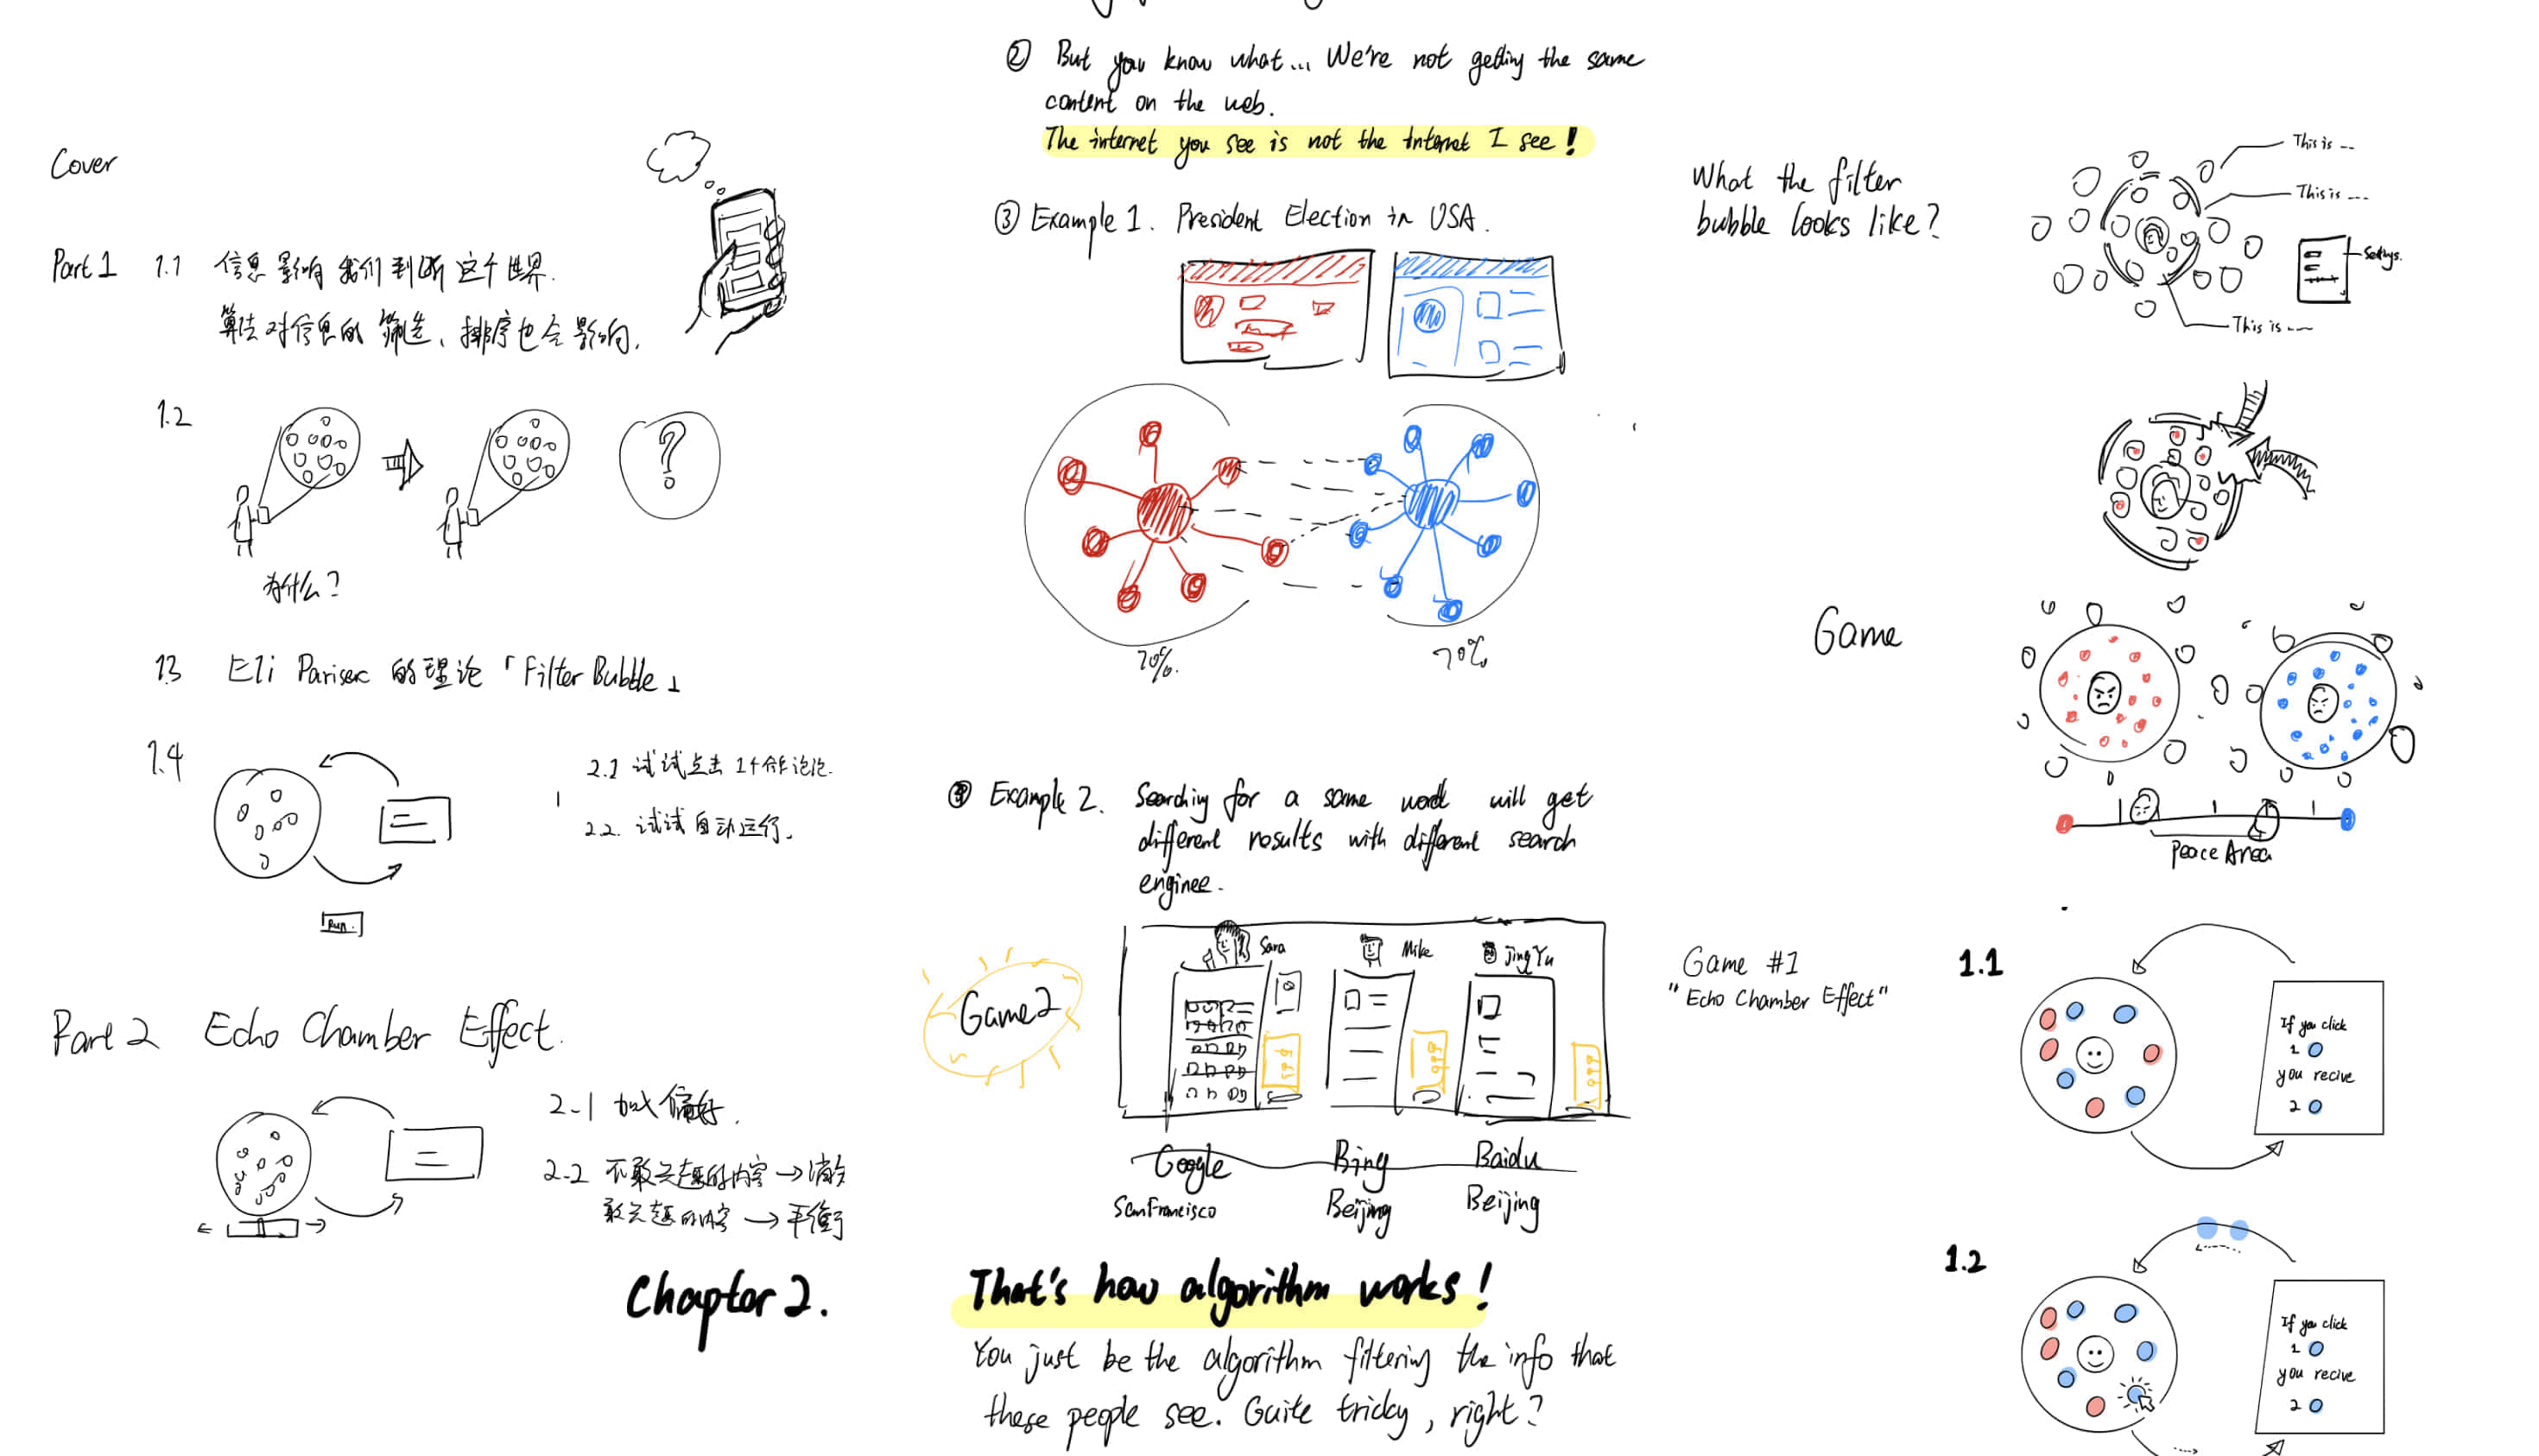 Cover
Part 1 1.1 信息影响我们判断这个世界.
算法对信息的筛选、排序也会影响.
1.2
?
为什么?
1.3 Eli Pariser 的理论「Filter Bubble」
1.4
2.1 试试点击1个泡泡.
2.2. 试试自动运行.
Run.
Part 2 Echo Chamber Effect.
2-1 加入偏好.
2-2 不感兴趣的内容→消失
感兴趣的内容→平衡
Chapter 2.
② But you know what... We're not getting the same
content on the web.
The internet you see is not the internet I see!
③ Example 1. President Election in USA.
70%.
70%
Example 2. Searching for a same word will get
different results with different search
enginee.
Game 2
Sara
Mike
Jing Yu
Google
Bing
Baidu
SanFrancisco
Beijing
Beijing
That's how algorithm works!
You just be the algorithm filtering the info that
these people see. Quite tricky, right?
What the filter
bubble looks like?
This is --
This is ---
Settings.
This is ---
Game
Peace Area
Game #1
"Echo Chamber Effect"
1.1
If you click
1
you recive
2
1.2
If you click
1
you recive
2